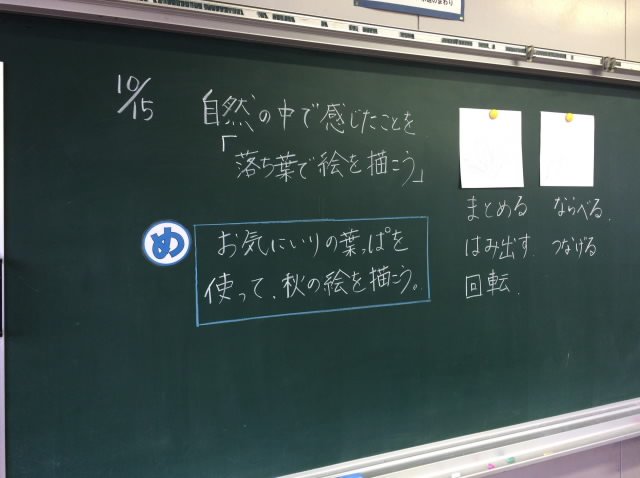 10/15
自然の中で感じたことを
「落ち葉で絵を描こう」
め
お気にいりの葉っぱを
使って、秋の絵を描こう。
まとめる ならべる
はみ出す つなげる
回転